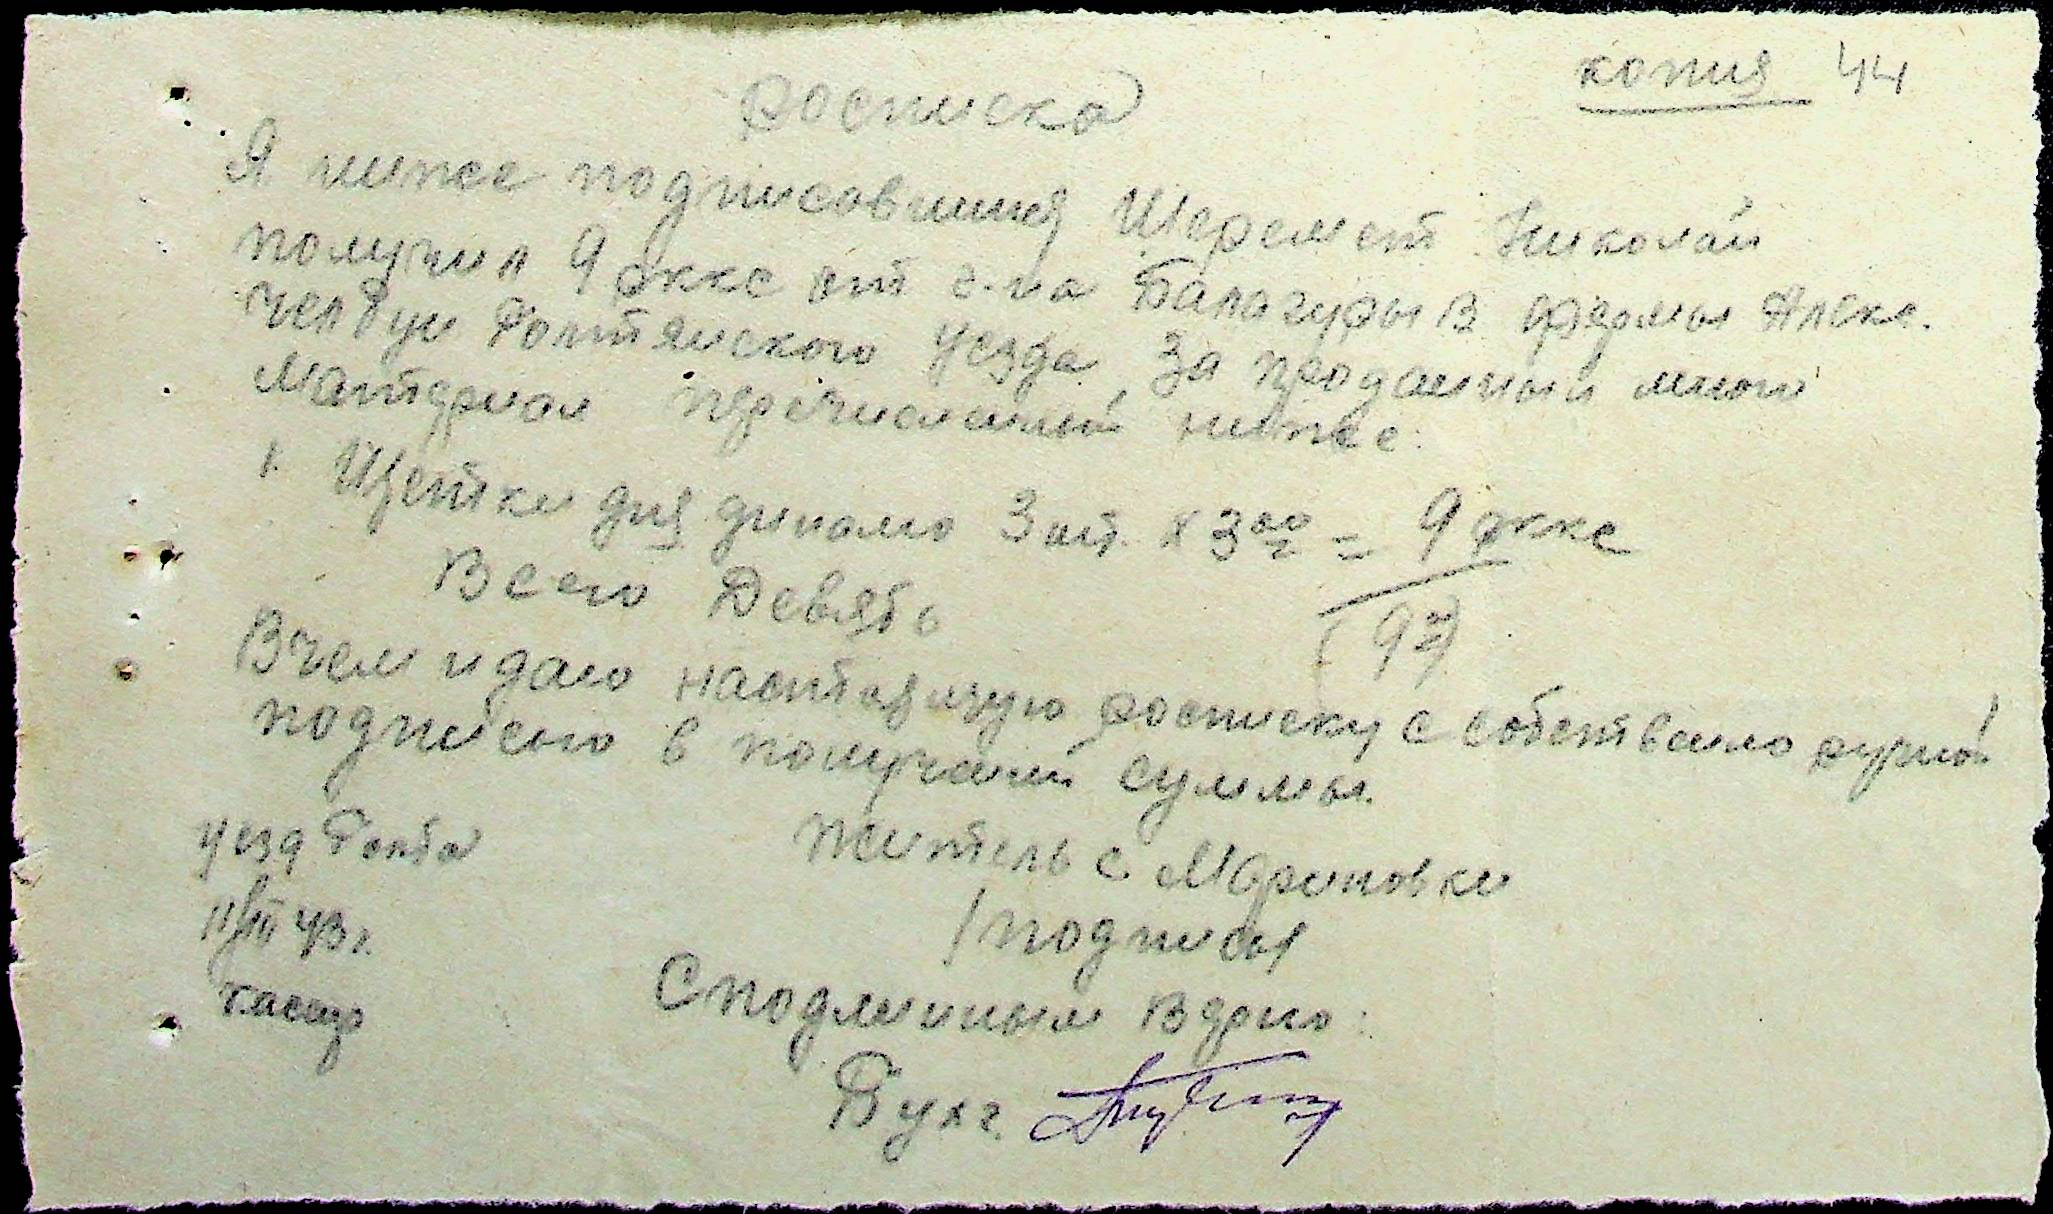 копия 44
Росписка
Я ниже подписовшийся Шеремет Николай
получил 9 рккс от г-на Балагуры В фермы Алекс.
Голтянского уезда за проданный мною
материал перечисленый ниже:
1. Щетки для динамо 3 шт. х 3 00 = 9 рккс
Всего Девять (9)
В чем и даю настоящую росписку с собственно ручной
подписью в получении суммы.
уезд Голта
Житель с. Мариновки
11/III 43 г.
/подпись/
Кассир
С подлинным верно:
Бухг.